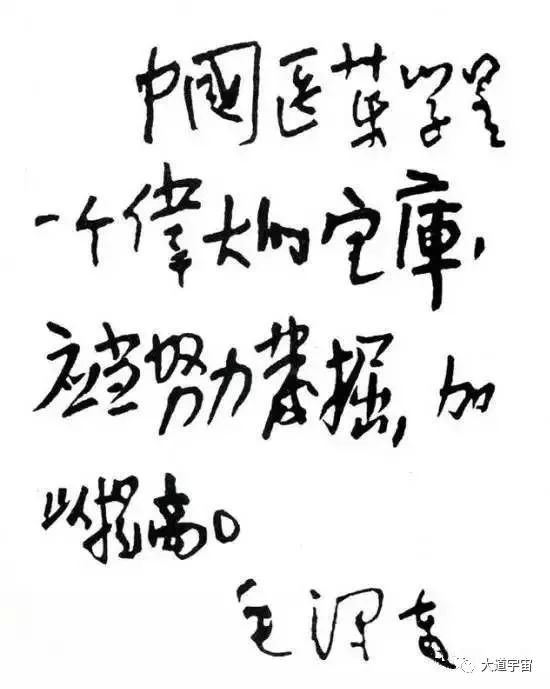 中國医药学是
一个偉大的宝庫,
应当努力发掘,加
以提高。
毛泽东
大道宇宙